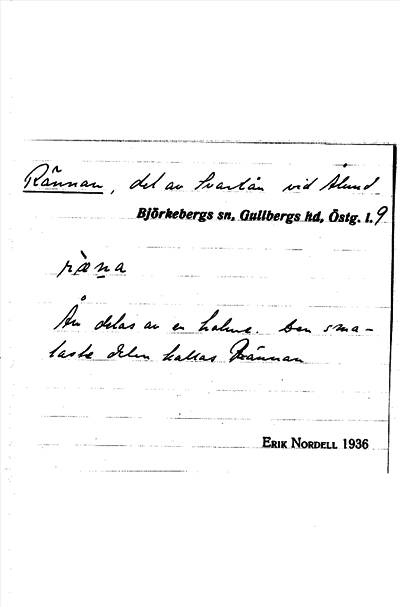 Rännan, del av Svartån vid Ålund
Björkebergs sn, Gullbergs hd, Östg. l. 9
ràn̠a
Ån delas av en holme. Den sma-
laste delen kallas Rännan
ERIK NORDELL 1936